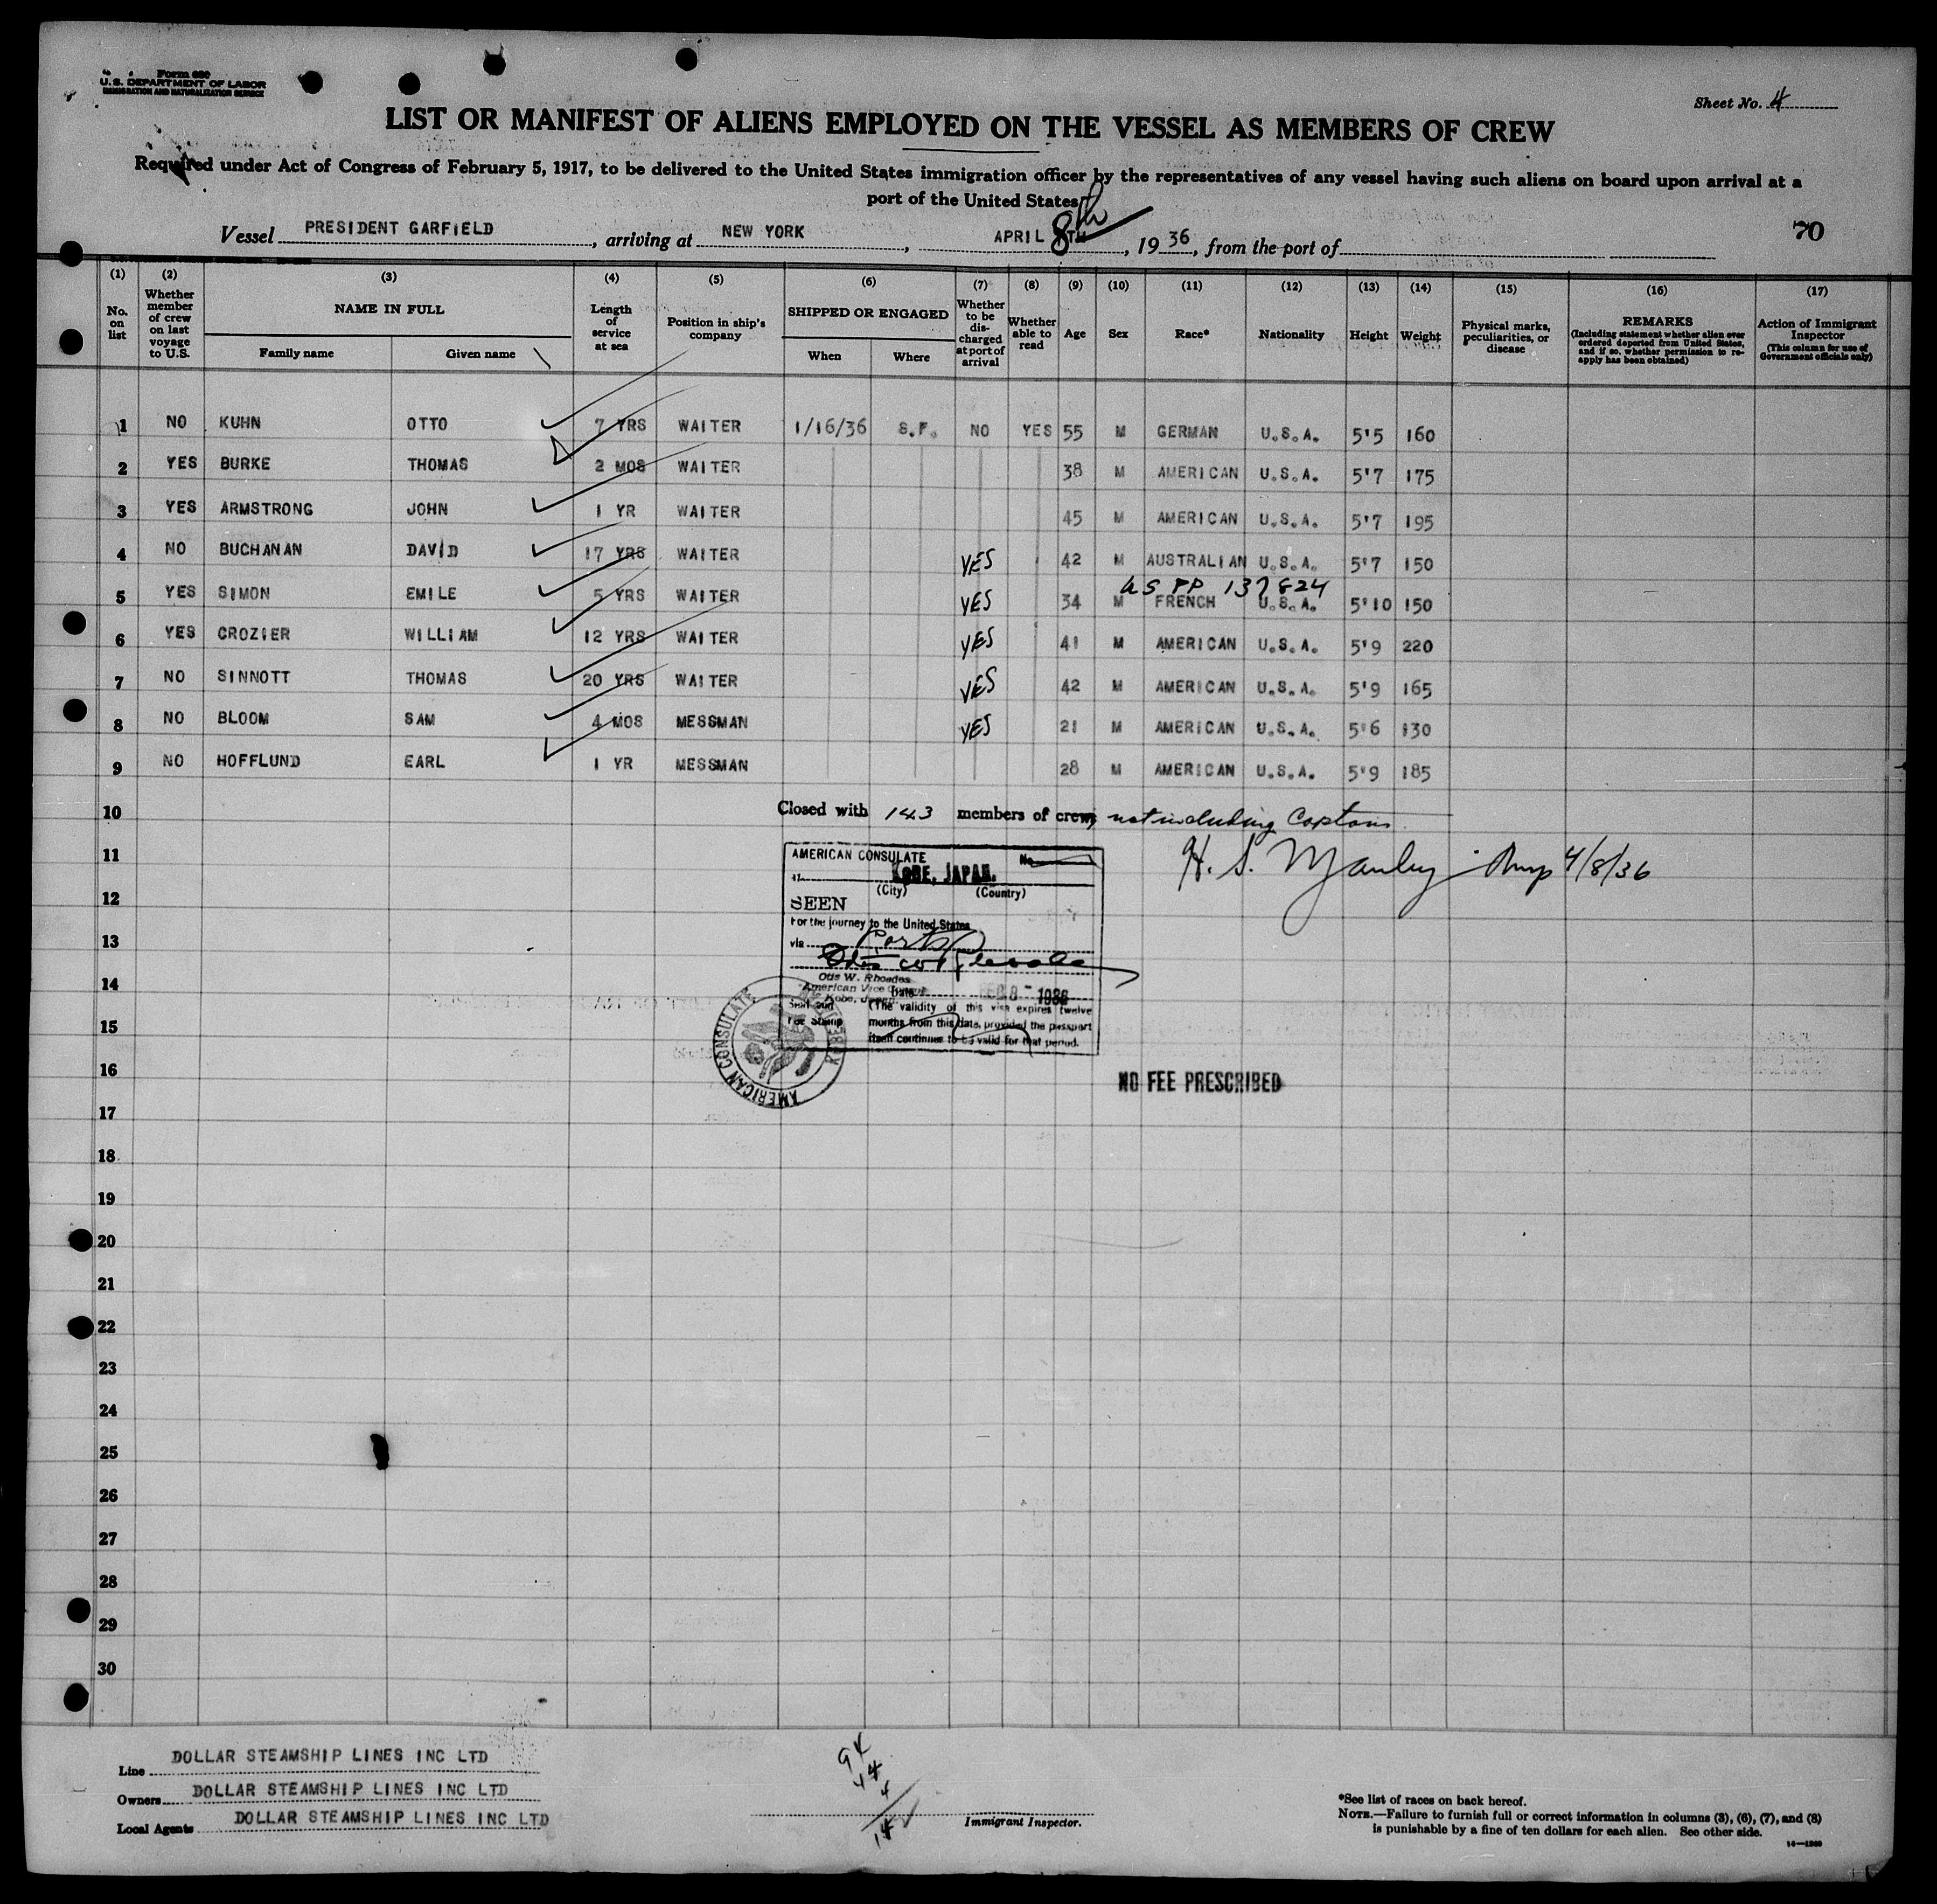 Form 680
U.S. DEPARTMENT OF LABOR
IMMIGRATION AND NATURALIZATION SERVICE
Sheet No. 4
LIST OR MANIFEST OF ALIENS EMPLOYED ON THE VESSEL AS MEMBERS OF CREW
Required under Act of Congress of February 5, 1917, to be delivered to the United States immigration officer by the representatives of any vessel having such aliens on board upon arrival at a
port of the United States
Vessel PRESIDENT GARFIELD, arriving at NEW YORK, APRIL 8th, 1936, from the port of
70
(1) (2) (3) (4) (5) (6) (7) (8) (9) (10) (11) (12) (13) (14) (15) (16) (17)
No. on list
Whether member of crew on last voyage to U.S.
NAME IN FULL
Family name Given name
Length of service at sea
Position in ship's company
SHIPPED OR ENGAGED
When Where
Whether to be discharged at port of arrival
Whether able to read
Age
Sex
Race*
Nationality
Height
Weight
Physical marks, peculiarities, or disease
REMARKS
(Including statement whether alien ever ordered deported from United States, and if so, whether permission to re-apply has been obtained)
Action of Immigrant Inspector
(This column for use of Government officials only)
1 NO KUHN OTTO 7 YRS WAITER 1/16/36 S.F. NO YES 55 M GERMAN U.S.A. 5'5 160
2 YES BURKE THOMAS 2 MOS WAITER 38 M AMERICAN U.S.A. 5'7 175
3 YES ARMSTRONG JOHN 1 YR WAITER 45 M AMERICAN U.S.A. 5'7 195
4 NO BUCHANAN DAVID 17 YRS WAITER YES 42 M AUSTRALIAN U.S.A. 5'7 150
US PP 137824
5 YES SIMON EMILE 5 YRS WAITER YES 34 M FRENCH U.S.A. 5'10 150
6 YES CROZIER WILLIAM 12 YRS WAITER YES 41 M AMERICAN U.S.A. 5'9 220
7 NO SINNOTT THOMAS 20 YRS WAITER YES 42 M AMERICAN U.S.A. 5'9 165
8 NO BLOOM SAM 4 MOS MESSMAN YES 21 M AMERICAN U.S.A. 5'6 130
9 NO HOFFLUND EARL 1 YR MESSMAN 28 M AMERICAN U.S.A. 5'9 185
10 Closed with 143 members of crew, not including Captain
11
H. S. Manley Insp 4/8/36
AMERICAN CONSULATE No.
KOBE, JAPAN.
(City) (Country)
12
SEEN
For the journey to the United States
13
via
Otis W. Rhoades
14
Otis W. Rhoades
American Vice Consul
Kobe, Japan
Date FEB 8 - 1936
Seal and
Fee Stamp
(The validity of this visa expires twelve
months from this date, provided the passport
itself continues to be valid for that period.
15
AMERICAN CONSULATE
KOBE
16
NO FEE PRESCRIBED
17
18
19
20
21
22
23
24
25
26
27
28
29
30
Line DOLLAR STEAMSHIP LINES INC LTD
Owners DOLLAR STEAMSHIP LINES INC LTD
Local Agents DOLLAR STEAMSHIP LINES INC LTD
Immigrant Inspector.
*See list of races on back hereof.
NOTE.—Failure to furnish full or correct information in columns (3), (6), (7), and (8)
is punishable by a fine of ten dollars for each alien. See other side.